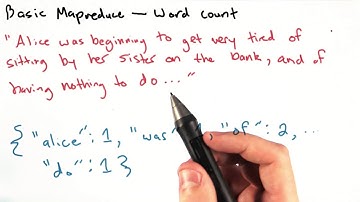 Basic Mapreduce — Word count
"Alice was beginning to get very tired of
sitting by her sister on the bank, and of
having nothing to do ... "
{ "alice": 1, "was" 1, "of": 2, ..
"do": 1 }